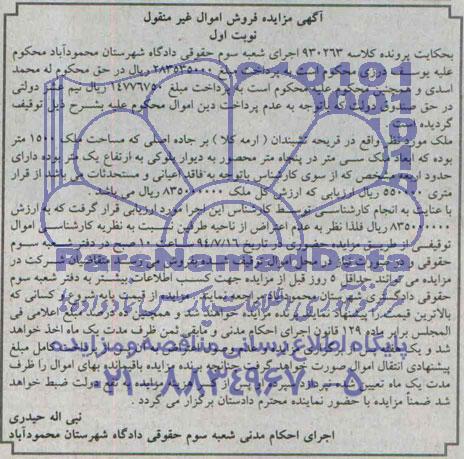 آگهی مزایده فروش اموال غیر منقول
نوبت اول
بحکایت پرونده کلاسه ۹۳۰۲۶۳ اجرای شعبه سوم حقوقی دادگاه شهرستان محمودآباد محکوم
علیه یوسف درزی محکوم است به پرداخت مبلغ ریال در حق محکوم له محمد
اسدی و همچنین محکوم علیه محکوم است به پرداخت مبلغ ۱۴۷۷۶۷۵۰ ریال نیم عشر دولتی
در حق دولت که باتوجه به عدم پرداخت دین اموال محکوم علیه بشرح ذیل توقیف
گردیده است
ملک مورد نظر واقع در قریحه تشبندان ( ارمه کلا ) بر جاده اصلی که مساحت ملک ۱۵۰۰ متر
بوده که ابعاد ملک سی متر در پنجاه متر محصور به دیوار بلوکی به ارتفاع یک متر بوده دارای
حدود اربعه مشخص که از سوی کارشناس باتوجه به فاقد اعیانی و مستحدثات می باشد از قرار
متری ۵۵۰۰۰۰ ریال ارزیابی که ارزش کل ملک ۸۳۵۰۰۰۰۰۰ ریال می باشد
با عنایت به انجام کارشناسی توسط کارشناس این اجرا مورد ارزیابی قرار گرفت که به ارزش
۸۳۵۰۰۰۰۰۰ ریال فلذا نظر به عدم اعتراض از ناحیه طرفین نسبت به نظریه کارشناسی اموال
توقیفی از طریق مزایده حضوری در تاریخ ۹۴/۷/۱۶ ساعت ۱۰ صبح در دفتر شعبه سوم
حقوقی در محل اموال توقیف شده بفروش می رسد متقاضیان شرکت در
مزایده می توانند حداقل ۵ روز قبل از مزایده جهت کسب اطلاعات بیشتر به دفتر شعبه سوم
حقوقی دادگستری شهرستان محمودآباد مراجعه نمایند. مزایده از قیمت پایه شروع و کسانی که
بالاترین قیمت را پیشنهاد برنده مزایده و همچنین ده درصد اعلامی فی
المجلس برابر ماده ۱۲۹ قانون اجرای احکام مدنی و مابقی ثمن ظرف مدت یک ماه اخذ خواهد
شد و مزایده مبلغ
پیشنهادی انتقال اموال صورت خواهد گرفت چنانچه برنده مزایده باقیمانده بهای اموال را ظرف
مدت یک ماه تعیین شده هزینه مزایده به نفع دولت ضبط خواهد
شد ضمناً مزایده با حضور نماینده محترم دادستان برگزار می گردد .
نبی اله حیدری
اجرای احکام مدنی شعبه سوم حقوقی دادگاه شهرستان محمودآباد
ParsNamadData
پایگاه اطلاع رسانی مناقصه و مزایده
۰۲۱-۸۸۳۴۹۶۷۰-۵